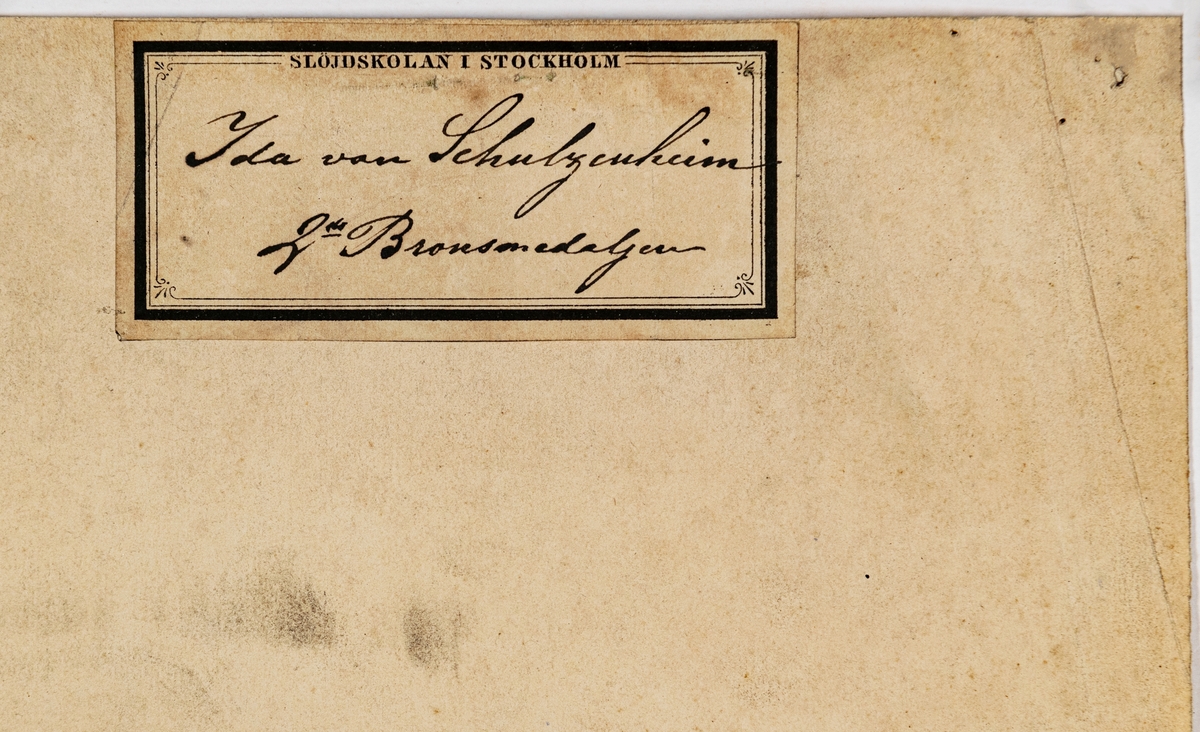 SLÖJDSKOLAN I STOCKHOLM
Ida von Schulzenheim
2dra Bronsmedaljen